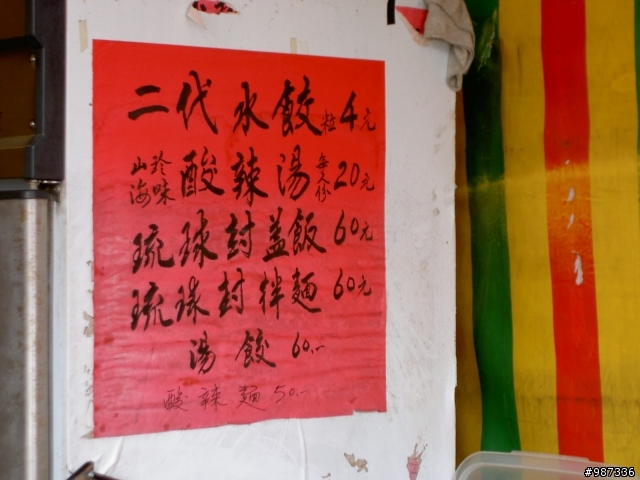 二代水餃粒4元
山珍海味酸辣湯每份20元
琉球封盖飯60元
琉球封拌麵60元
湯餃60.-
酸辣麵50.-
#987336